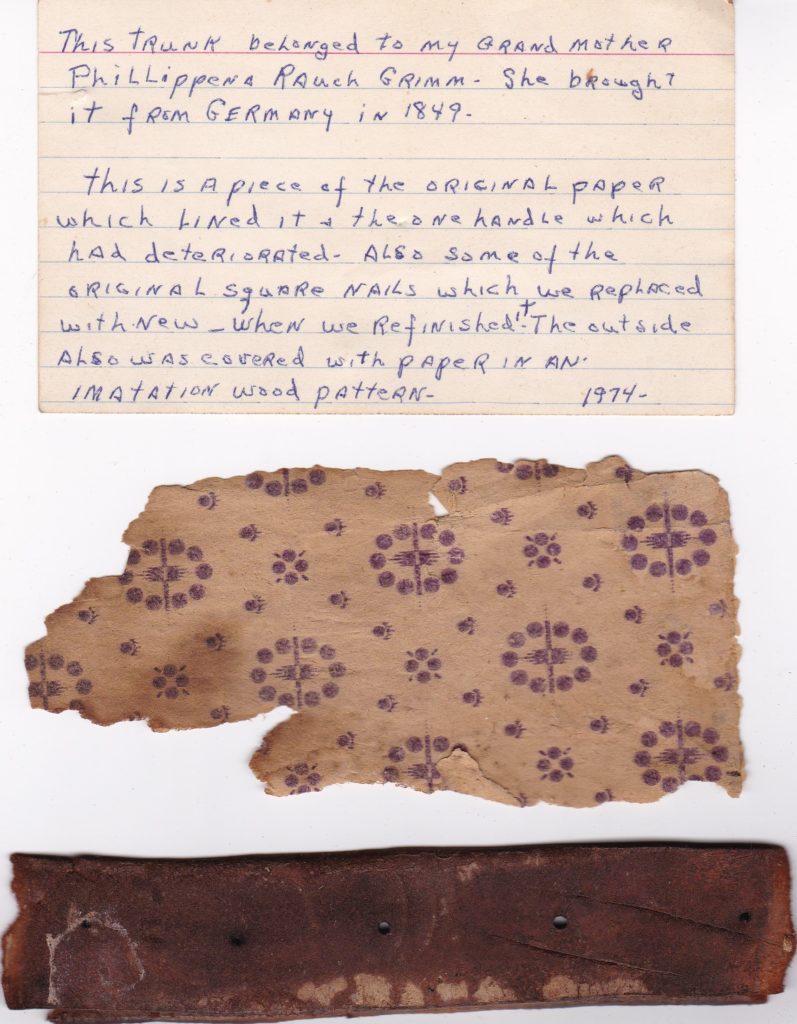 This TRUNK belonged to my GRAND mother
PhiLLippena RAuch GRIMM- She brought
it from GERMANY in 1849-
this is A piece of the ORIGINAL paper
which LINED it + the one handle which
hAd deteriorated- ALSO some of the
ORIGINAL square NAILS which we RepLACed
with New - when we Refinished it - The outside
ALSO WAS covered with pAper IN AN
IMATATION wood pATTERN- 1974-